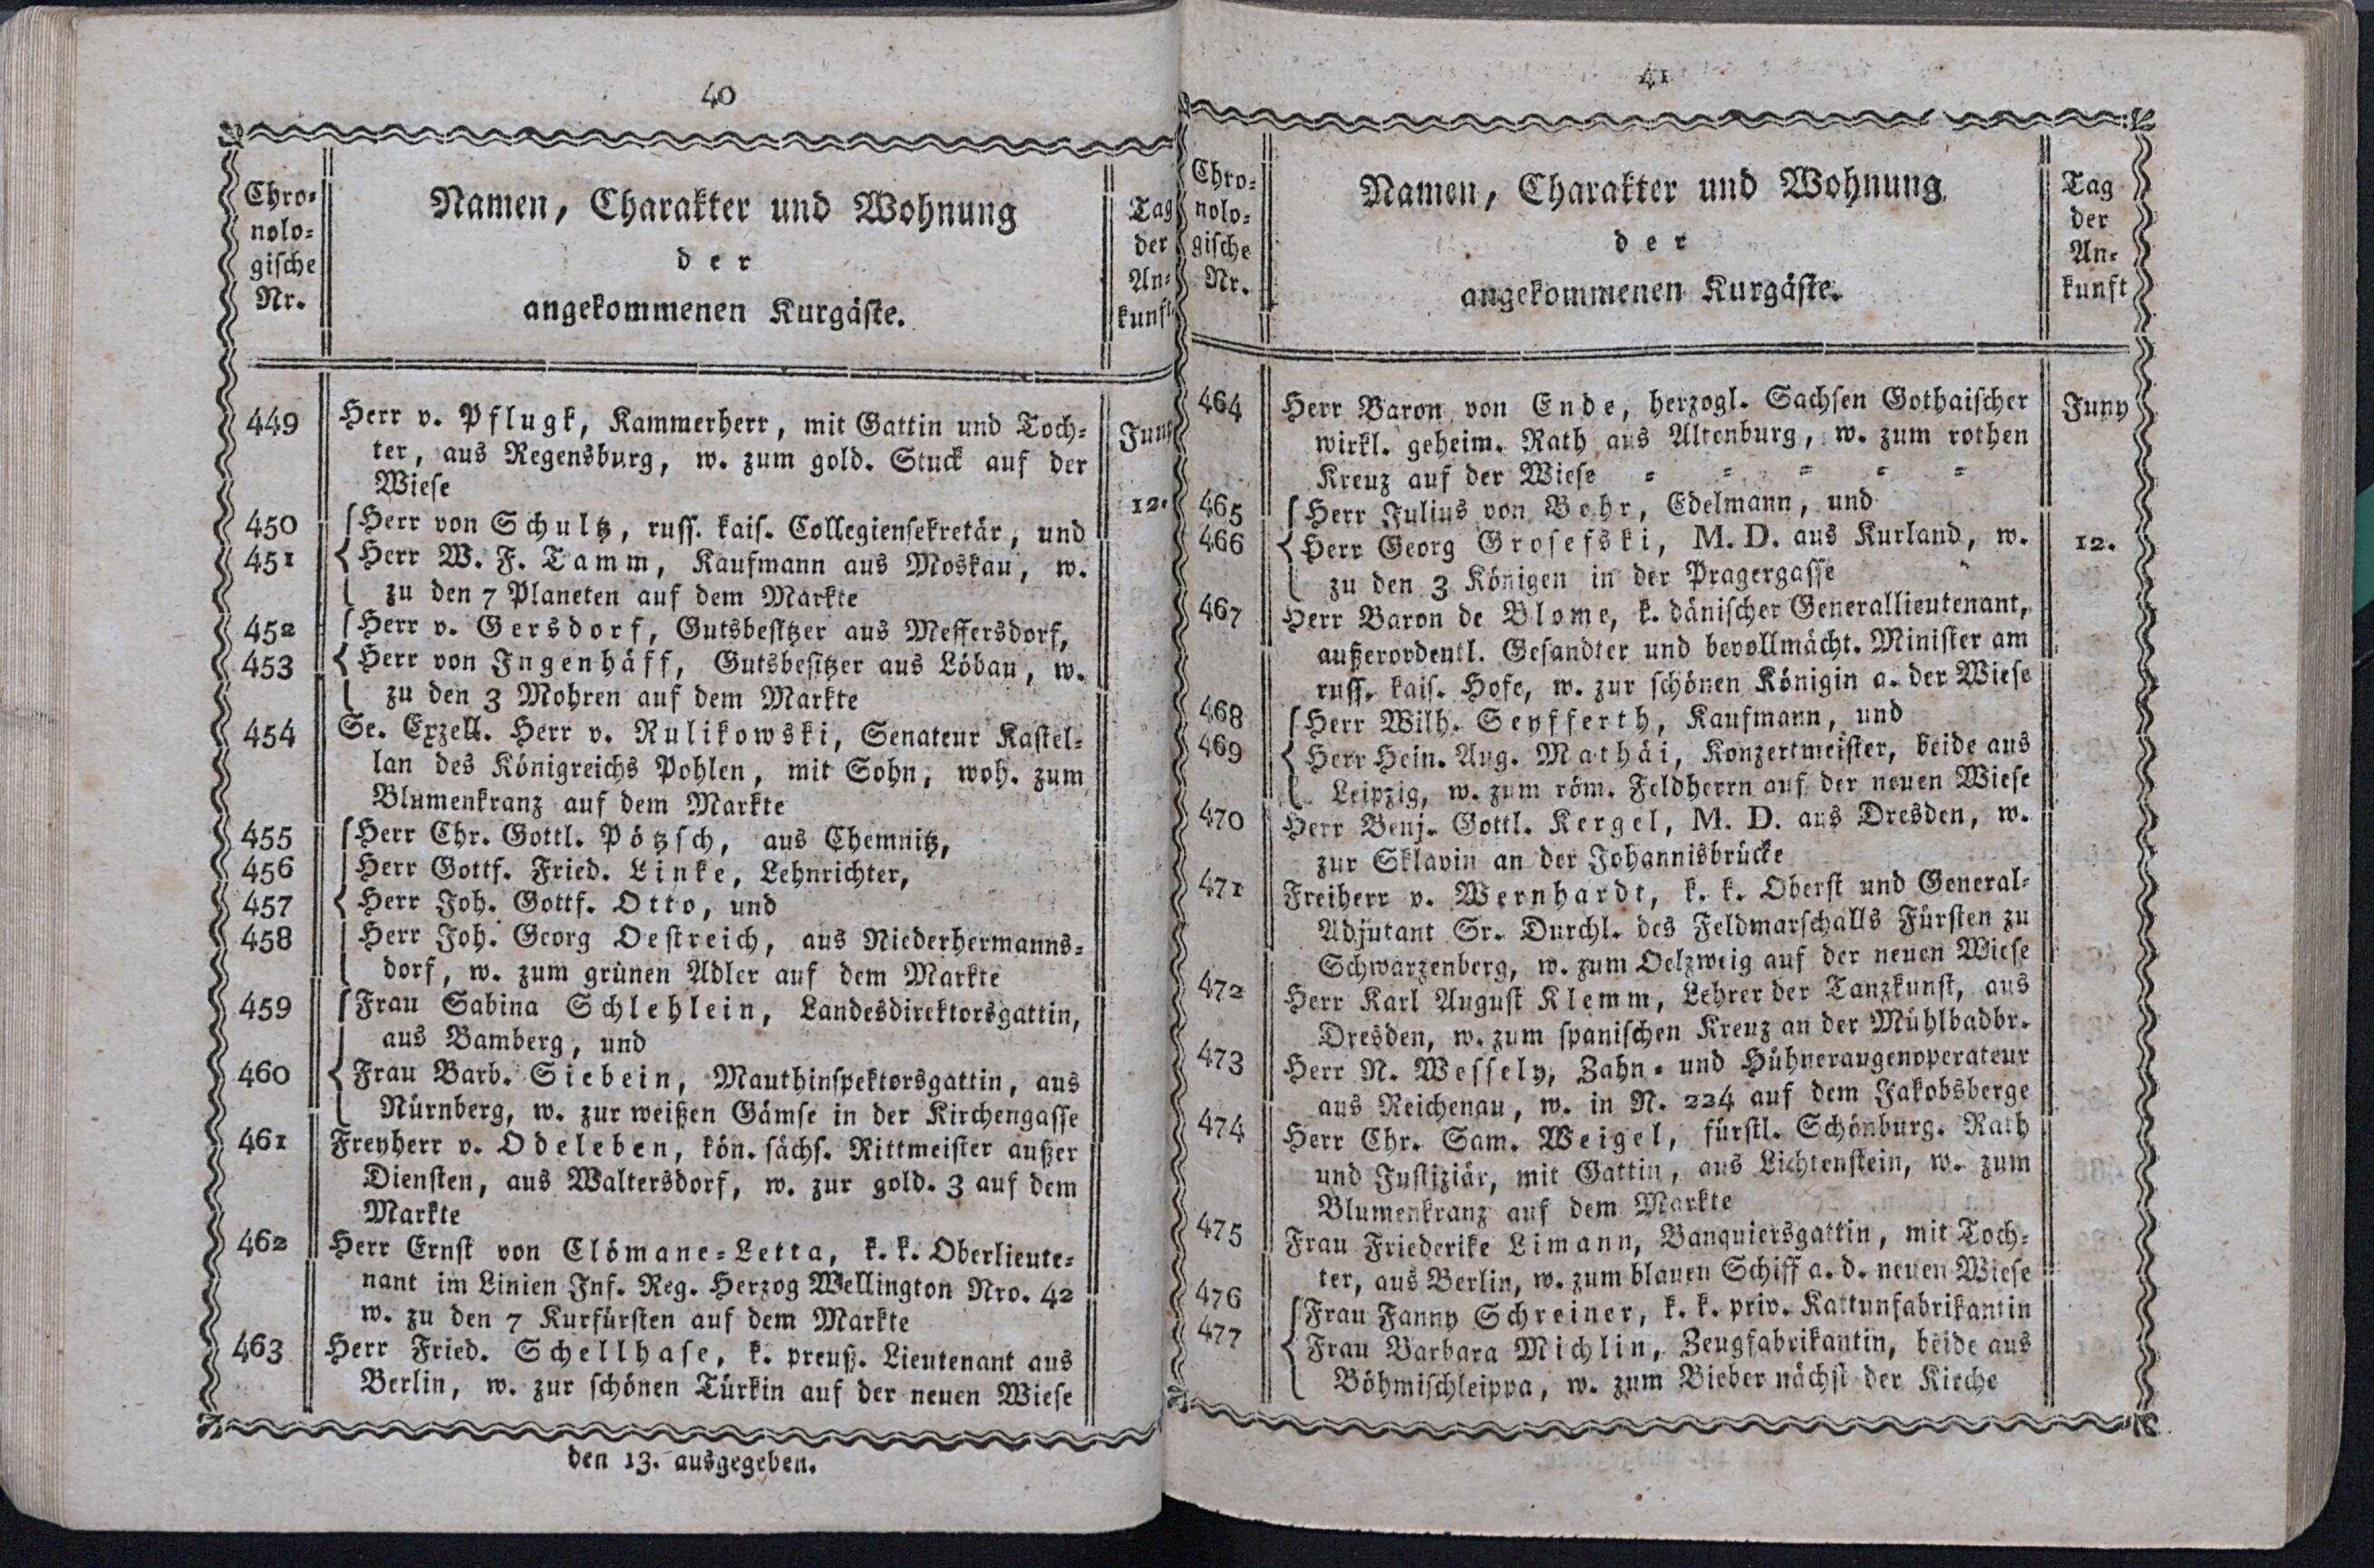 40
Chro-
nolo-
gische
Nr.
Namen, Charakter und Wohnung
der
angekommenen Kurgäste.
Tag
der
An-
kunft
449 Herr v. Pflugk, Kammerherr, mit Gattin und Toch-
ter, aus Regensburg, w. zum gold. Stuck auf der
Wiese
Juny
12.
450 Herr von Schultz, russ. kais. Collegiensekretär, und
451 Herr W. F. Tamm, Kaufmann aus Moskau, w.
zu den 7 Planeten auf dem Markte
452 Herr v. Gersdorf, Gutsbesitzer aus Meffersdorf,
453 Herr von Ingenhäff, Gutsbesitzer aus Löbau, w.
zu den 3 Mohren auf dem Markte
454 Se. Exzell. Herr v. Rulikowski, Senateur Kastel-
lan des Königreichs Pohlen, mit Sohn, woh. zum
Blumenkranz auf dem Markte
455 Herr Chr. Gottl. Pötzsch, aus Chemnitz,
456 Herr Gottf. Fried. Linke, Lehnrichter,
457 Herr Joh. Gottf. Otto, und
458 Herr Joh. Georg Oestreich, aus Niederhermanns-
dorf, w. zum grünen Adler auf dem Markte
459 Frau Sabina Schlehlein, Landesdirektorsgattin,
aus Bamberg, und
460 Frau Barb. Siebein, Mauthinspektorsgattin, aus
Nürnberg, w. zur weißen Gämse in der Kirchengasse
461 Freyherr v. Odeleben, kön. sächs. Rittmeister außer
Diensten, aus Waltersdorf, w. zur gold. 3 auf dem
Markte
462 Herr Ernst von Clömane-Letta, k. k. Oberlieute-
nant im Linien Inf. Reg. Herzog Wellington Nro. 42
w. zu den 7 Kurfürsten auf dem Markte
463 Herr Fried. Schellhase, k. preuß. Lieutenant aus
Berlin, w. zur schönen Türkin auf der neuen Wiese
den 13. ausgegeben.
41
Chro-
nolo-
gische
Nr.
Namen, Charakter und Wohnung
der
angekommenen Kurgäste.
Tag
der
An-
kunft
464 Herr Baron von Ende, herzogl. Sachsen Gothaischer
wirkl. geheim. Rath aus Altenburg, w. zum rothen
Kreuz auf der Wiese - - - - -
Juny
465 Herr Julius von Behr, Edelmann, und
466 Herr Georg Grosefski, M. D. aus Kurland, w.
zu den 3 Königen in der Pragergasse
12.
467 Herr Baron de Blome, k. dänischer Generallieutenant,
außerordentl. Gesandter und bevollmächt. Minister am
russ. kais. Hofe, w. zur schönen Königin a. der Wiese
468 Herr Wilh. Seyfferth, Kaufmann, und
469 Herr Hein. Aug. Mathäi, Konzertmeister, beide aus
Leipzig, w. zum röm. Feldherrn auf der neuen Wiese
470 Herr Benj. Gottl. Kergel, M. D. aus Dresden, w.
zur Sklavin an der Johannisbrücke
471 Freiherr v. Wernhardt, k. k. Oberst und General-
Adjutant Sr. Durchl. des Feldmarschalls Fürsten zu
Schwarzenberg, w. zum Oelzweig auf der neuen Wiese
472 Herr Karl August Klemm, Lehrer der Tanzkunst, aus
Dresden, w. zum spanischen Kreuz an der Mühlbadbr.
473 Herr N. Wessely, Zahn- und Hühneraugenoperateur
aus Reichenau, w. in N. 224 auf dem Jakobsberge
474 Herr Chr. Sam. Weigel, fürstl. Schönburg. Rath
und Justiziär, mit Gattin, aus Lichtenstein, w. zum
Blumenkranz auf dem Markte
475 Frau Friederike Limann, Banquiersgattin, mit Toch-
ter, aus Berlin, w. zum blauen Schiff a. d. neuen Wiese
476 Frau Fanny Schreiner, k. k. priv. Kattunfabrikantin
477 Frau Barbara Michlin, Zeugfabrikantin, beide aus
Böhmischleippa, w. zum Bieber nächst der Kirche